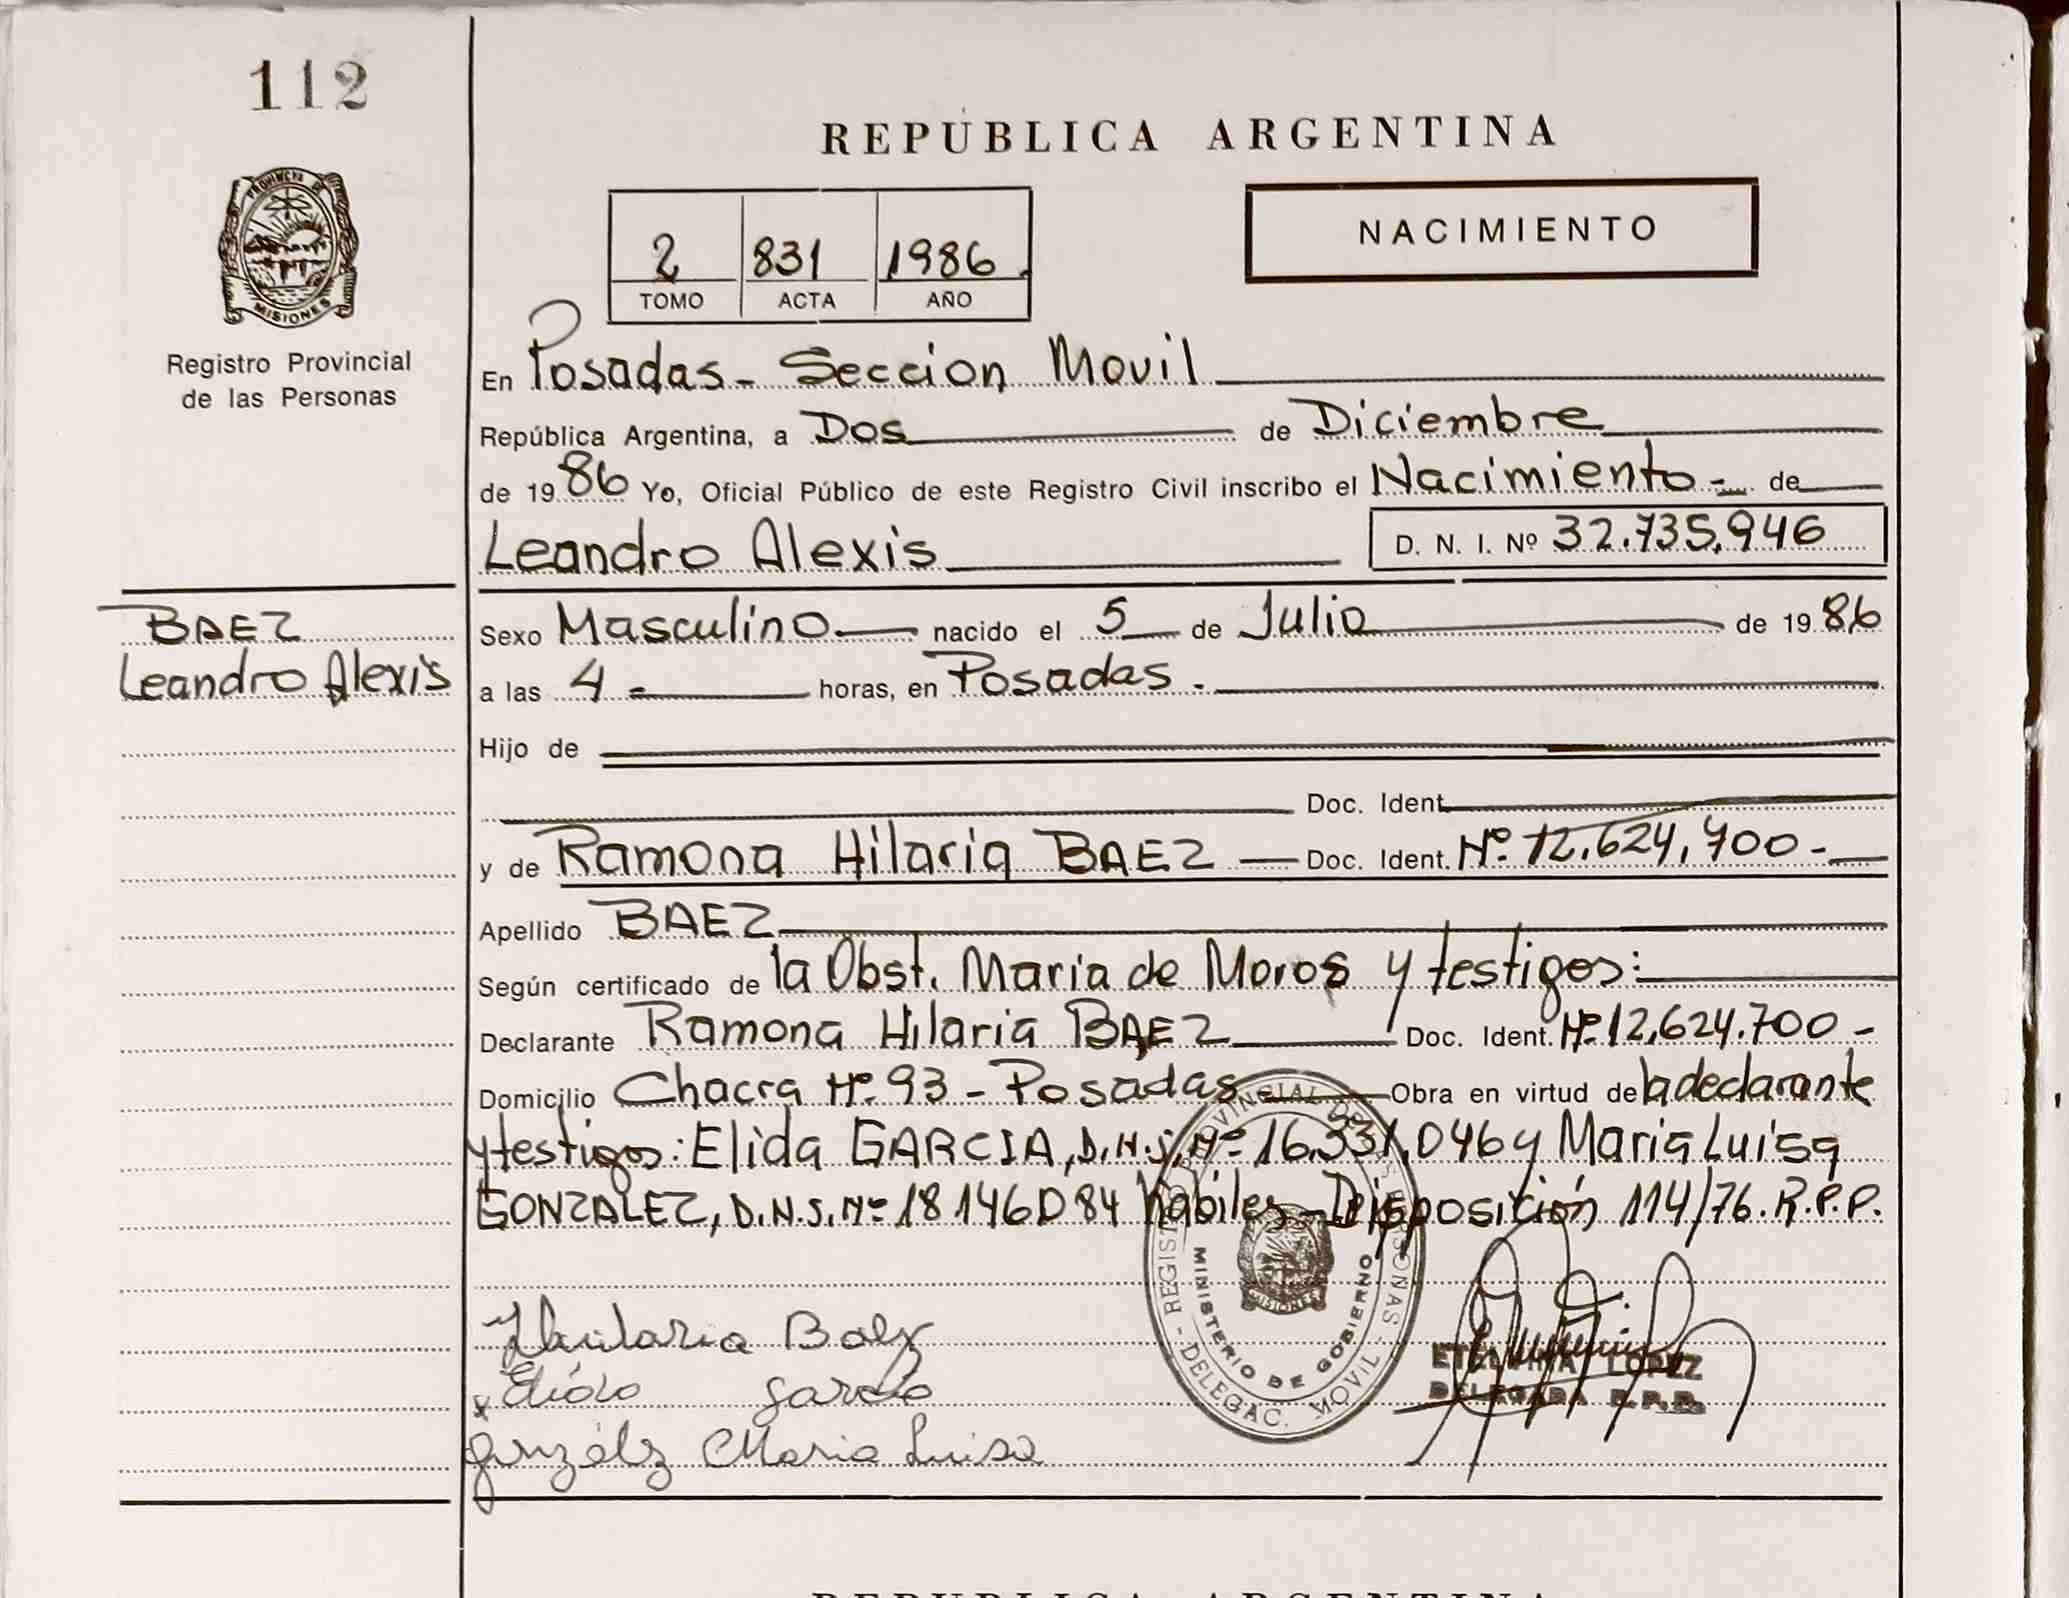 112
REPÚBLICA ARGENTINA
PROVINCIA DE
MISIONES
Registro Provincial
de las Personas
2 831 1986
TOMO ACTA AÑO
NACIMIENTO
En Posadas - Seccion Movil
República Argentina, a Dos de Diciembre
de 1986 Yo, Oficial Público de este Registro Civil inscribo el Nacimiento - de
Leandro Alexis D. N. I. Nº 32.735.946
BAEZ
Leandro Alexis
Sexo Masculino nacido el 5 de Julio de 1986
a las 4 = horas, en Posadas -
Hijo de
Doc. Ident.
y de Ramona Hilaria BAEZ — Doc. Ident. Nº 12.624.700 -
Apellido BAEZ
Según certificado de la Obst. Maria de Moros y testigos:
Declarante Ramona Hilaria BAEZ Doc. Ident. Nº 12.624.700 -
Domicilio Chacra Nº 93 - Posadas Obra en virtud de la declarante
y testigos: Elida GARCIA, D.N.I. Nº 16.331.046 y Maria Luisa
GONZALEZ, D.N.I. Nº 18146084 habiles - Disposición 114/76. R.P.P.
REGISTRO PROVINCIAL DE LAS PERSONAS - DELEGAC. MOVIL -
MINISTERIO DE GOBIERNO
MISIONES
Hilaria Baez
Elida Garcia
Gonzalez Maria Luisa
ETELVINA LOPEZ
DELEGADA R.P.P.
REPUBLICA ARGENTINA